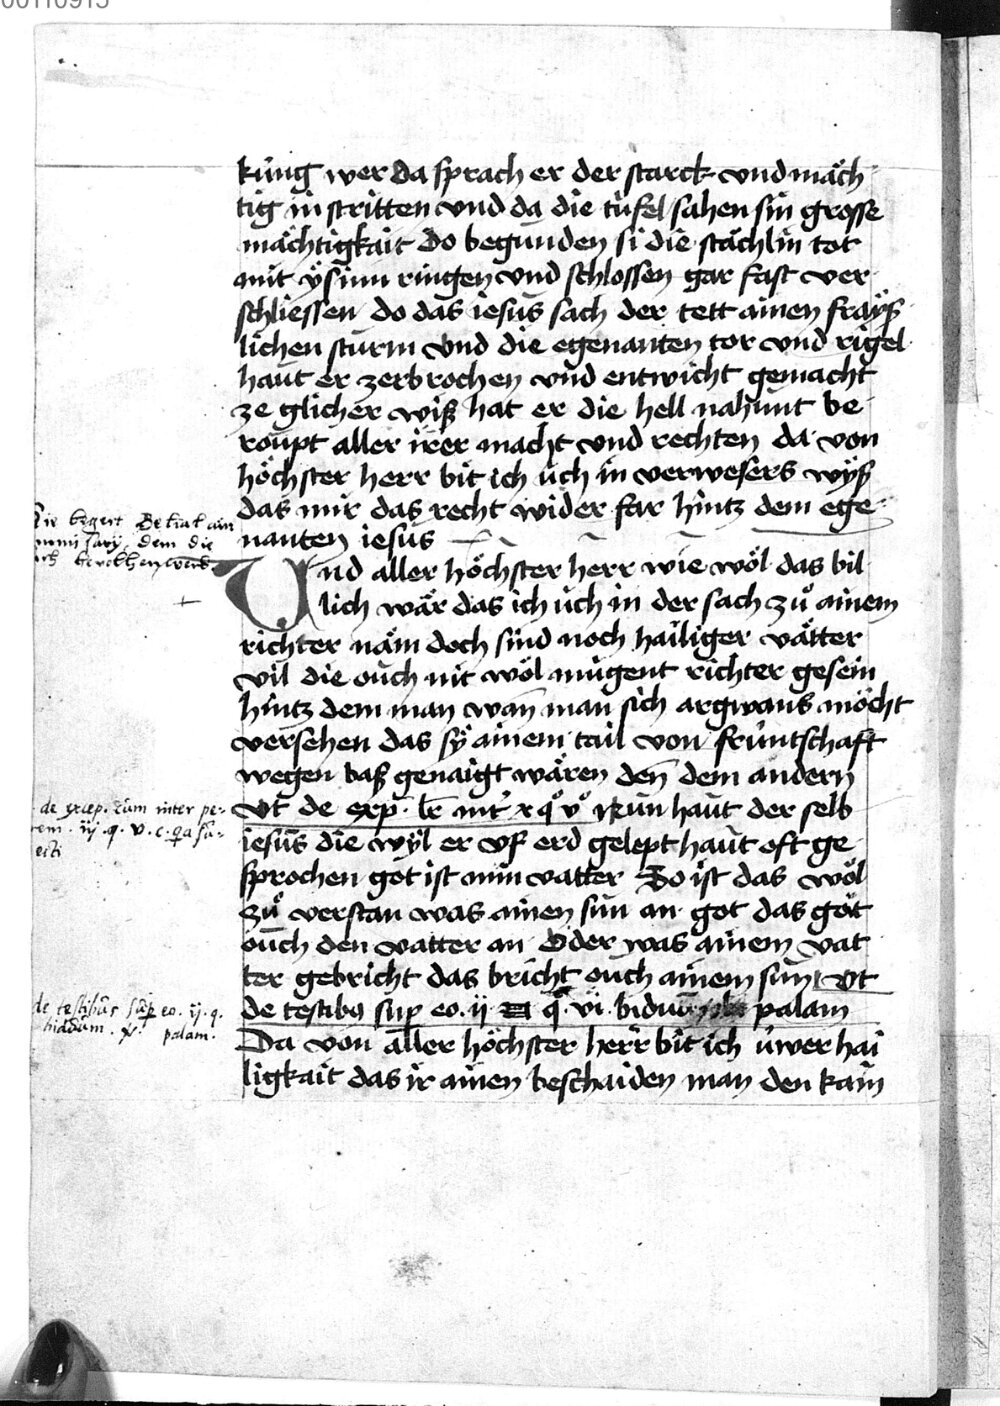 00110915
kúng wer da sprach er der starck vnd mäch
tig in stritten vnd da die tüfel sahen sin grosse
mächtigkait Do begunden si die stächlin tor
mit ÿsinn ringen vnd schlossen gar fast ver
schliessen do das iesus sach der tett ainen frayß
lichen sturm vnd die egenanten tor vnd rigel
haut er zerbrochen vnd entwicht gemacht
ze glicher wiß hat er die hell nahunt be
roupt aller irer macht vnd rechten da von
höchster herr bit ich üch in verwesers wÿß
das mir das recht wider far hintz dem ege
nanten iesus
Vnd aller höchster herr wie wöl das bil
lich wär das ich üch in der sach zů ainem
richter näm doch sind noch hailiger vätter
vil die ouch nit wöl mügent richter gesein
hintz dem man wan man sich argwans möcht
versehen das sÿ ainem tail von frúntschaft
wegen baß genaigt wären den dem andern
vt de exp. Nun haut der selb
iesus die wÿl er vf erd gelept haut oft ge
sprochen got ist min vatter So ist das wöl
zů verstan was ainen sun an got das göt
ouch den vatter an Oder was ainem vat
ter gebricht das bricht ouch ainem sun vt
de testibꝰ sup eo. ij q. vi. biduū palam
Da von aller höchster herr bit ich úwer hai
ligkait das ir ainen beschaiden man den kain
Hie begert Belial ain
dem die
+
de excep. cum inter pe-
rem. iij. q. v. c. qa su-
ecti
de testibus sup eo. ij. q.
biduum. palam.